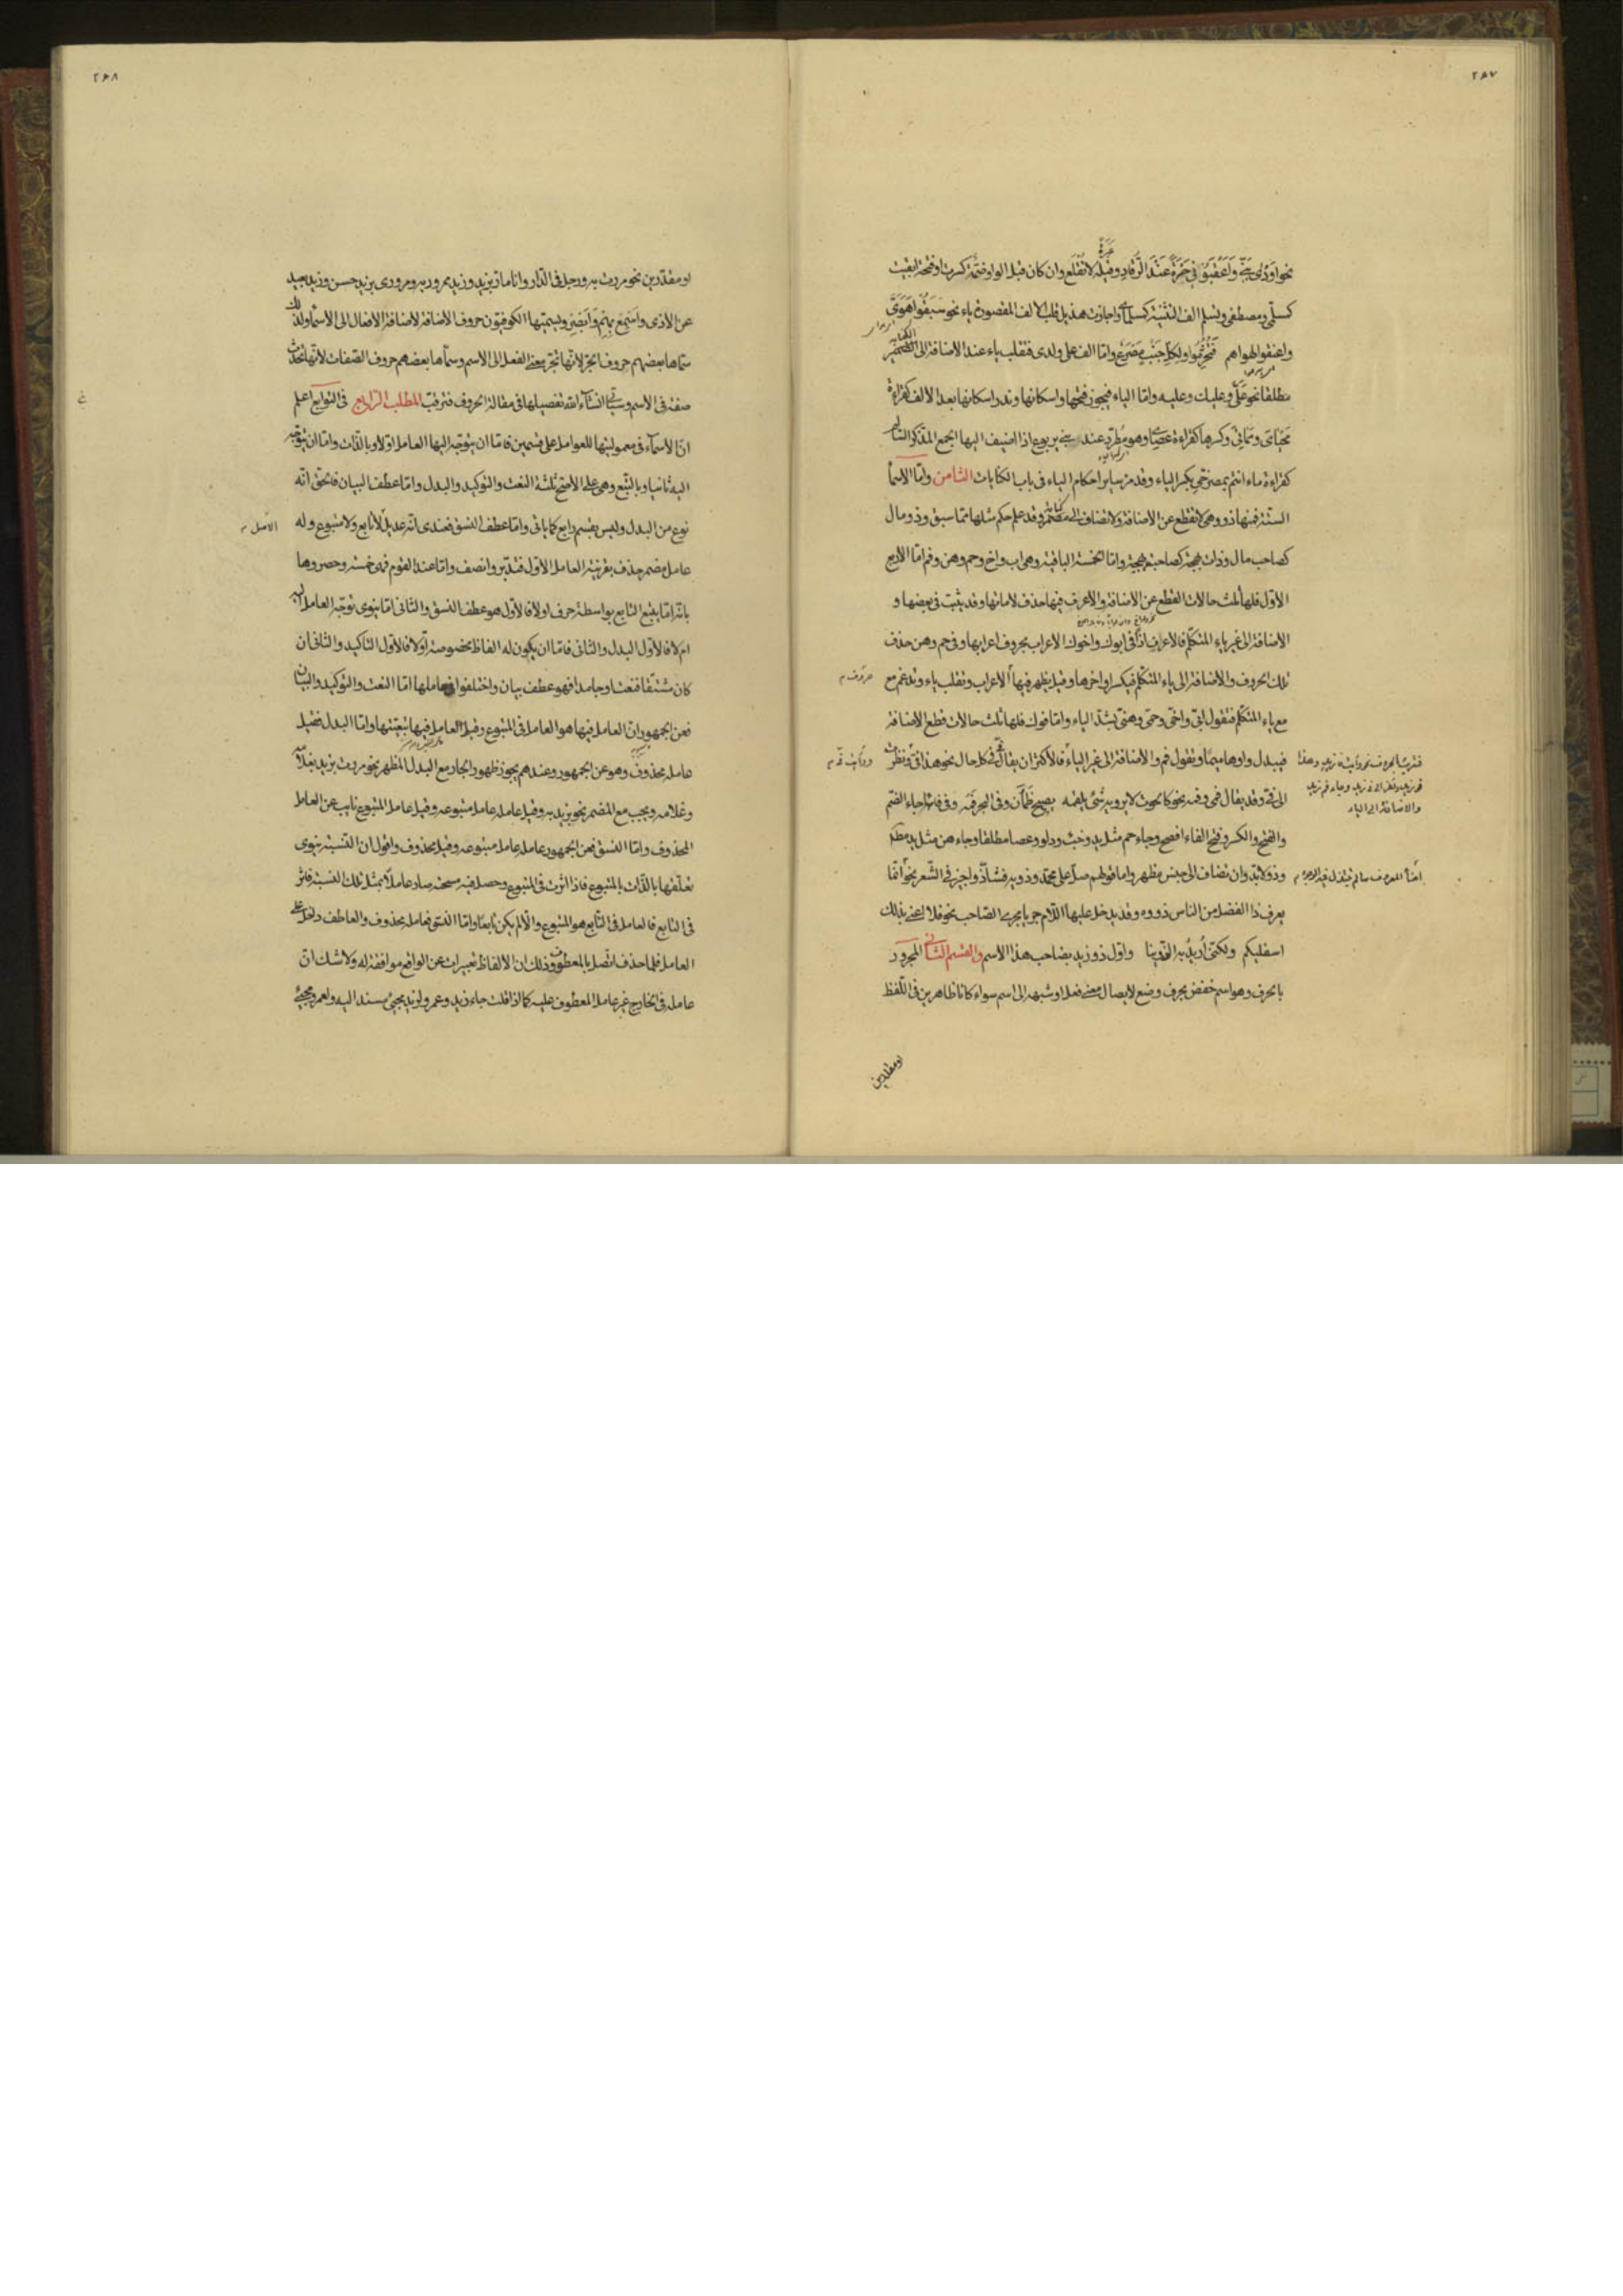 ٢٦٧
نحو اودى بنيّ واعقبوني حسرة عند الرقاد وعبرة لا تقلع وان كان قبل الواو ضمّة كسرت او فتحة ابقيت
كمسلمي ومصطفي وتسلم الف التثنية كمسلماي واجازت هذيل قلب الالف المقصورة ياء نحو سبقوا هويّ
واعنقوا لهواهم فتخرموا ولكل جنب مصرع واما الف على ولدى فتقلب ياء عند الاضافة الى الضمير
مطلقا نحو عليّ وعليك وعليه واما الياء فيجوز فتحها واسكانها وندر اسكانها بعد الالف كقراءة
محياي ومماتي وكسرها كقراءة عصاي وهو مطرد عند بني يربوع اذا اضيف اليها الجمع المذكر السالم
كقراءة ما انتم بمصرخيّ بكسر الياء وقد مرّ ساير احكام الياء في باب الكنايات الثامن وامّا الاسماء
الستة فمنها ذو وهي لا تقطع عن الاضافة ولا تضاف الى مضمر وقد علم حكم مثلها مما سبق وذو مال
كصاحب مال وذات بهجة كصاحبة بهجة واما الخمسة الباقية وهي اب واخ وحم وهن وفم امّا الاربع
الاول فلها ثلث حالات القطع عن الاضافة والاعرف فيها حذف لاماتها وقد يثبت في بعضها و
الاضافة الى غير ياء المتكلم فالاعراف اذا في ابوك واخوك الاعراب بحروف اعرابها وفي حم وهن حذف
تلك الحروف والاضافة الى ياء المتكلم فيكسر اواخرها وقيل يظهر فيها الاعراب وتقلب ياء وتدغم مع
حروف
مع ياء المتكلم فتقول ابيّ واخيّ وحميّ وهنيّ بشد الياء واما فوك فلها ثلث حالات قطع الاضافة
فيبدل واوها ميما وتقول فم والاضافة الى غير الياء فالاكثر ان يقال في كل حال نحو هذا فيّ ونظرت
الى فيّ وقد يقال فمي وفمه نحو كالحوت لا يرويه شيء يلقمه يصبح ظمآن وفي البحر فمه وفي فائها جاء الضم
والاضافة الى الياء
والفتح والكسر وفتح الفاء افصح وجاء حم مثل يد وخبء ودلو وعصا مطلقا وجاء هن مثل يد مطلقا
وذو لابد وان تضاف الى جنس مظهر واما قولهم صل على محمد وذويه فشاذ واجيز في الشعر نحو انّما
يعرف ذا الفضل من الناس ذووه وقد يدخل عليها اللام جريا مجرى الصاحب نحو فلا اعني بذلك
اسفليكم ولكني اريد به الذوينا واوّل ذو زيد بصاحب هذا الاسم والقسم الثاني المجرور
بالحرف وهو اسم خفض بحرف وضع لايصال معنى فعل او شبهه الى اسم سواء كانا ظاهرين في اللفظ
او مقدرين
٢٦٨
او مقدّرين نحو مررت به ورجل في الدار وانا مار بزيد وزيد ممرور به ومروري بزيد حسن وزيد بعيد
عن الاذى واسمع بهم وابصر ويسميها الكوفيون حروف الاضافة لاضافة الافعال الى الاسماء ولذلك
سماها بعضهم حروف الجر لانها تجر معنى الفعل الى الاسم وسماها بعضهم حروف الصفات لانها تحدث
صفة في الاسم وسيأتي انشاء الله تفصيلها في مقالة الحروف فترقب المطلب الرابع في التوابع اعلم
انّ الاسماء في معموليتها للعوامل على قسمين فامّا ان يتوجّه اليها العامل اولا وبالذات واما ان يتوجّه
اليه ثانيا وبالتبع وهي على الاصح ثلثة النعت والتوكيد والبدل واما عطف البيان فالحق انه
نوع من البدل وليس بقسم رابع كما ياتي واما عطف النسق فعندي انه عديل لا تابع ولا متبوع وله
الاصل
عامل مضمر حذف بقرينة العامل الاول فتدبّر وانصف واما عند القوم فهي خمسة وحصروها
بانه امّا يتبع التابع بواسطة حرف اولا فالاول هو عطف النسق والثاني امّا ينوي توجّه العامل اليه
ام لا فالاول البدل والثاني فامّا ان يكون له الفاظ مخصوصة أو لا فالاول التاكيد والثاني ان
كان مشتقا فنعت او جامدا فهو عطف بيان واختلفوا في عاملها امّا النعت والتوكيد والبيان
فعن الجمهور انّ العامل فيها هو العامل في المتبوع وقيل العامل فيها تبعيّتها واما البدل فقيل
عامله محذوف وهو عن الجمهور وعندهم يجوز ظهور الجار مع البدل المظهر نحو مررت بزيد بغلامه
وغلامه ويجب مع المضمر نحو بزيد به وقيل عامله عامل متبوعه وقيل عامل المتبوع نايب عن العامل
المحذوف واما النسق فعن الجمهور عامله عامل متبوعه وقيل محذوف واقول ان النسبة ينوى
تعلّقها بالذات بالمتبوع فاذا اثرت في المتبوع وحصل فيه مسحته صار عاملا بمثل تلك النسبة فاثر
في التابع فالعامل في التابع هو المتبوع والا لم يكن تابعا واما النسق فعامله محذوف والعاطف داخل على
العامل فلما حذف اتصل بالمعطوف وذلك ان الالفاظ تعبيرات عن الواقع موافقة له ولا شك انّ
عامله في الخارج غير عامل المعطوف عليه كما اذا قلت جاء زيد وعمرو لزيد مجيئ يسند اليه ولعمرو مجيئ